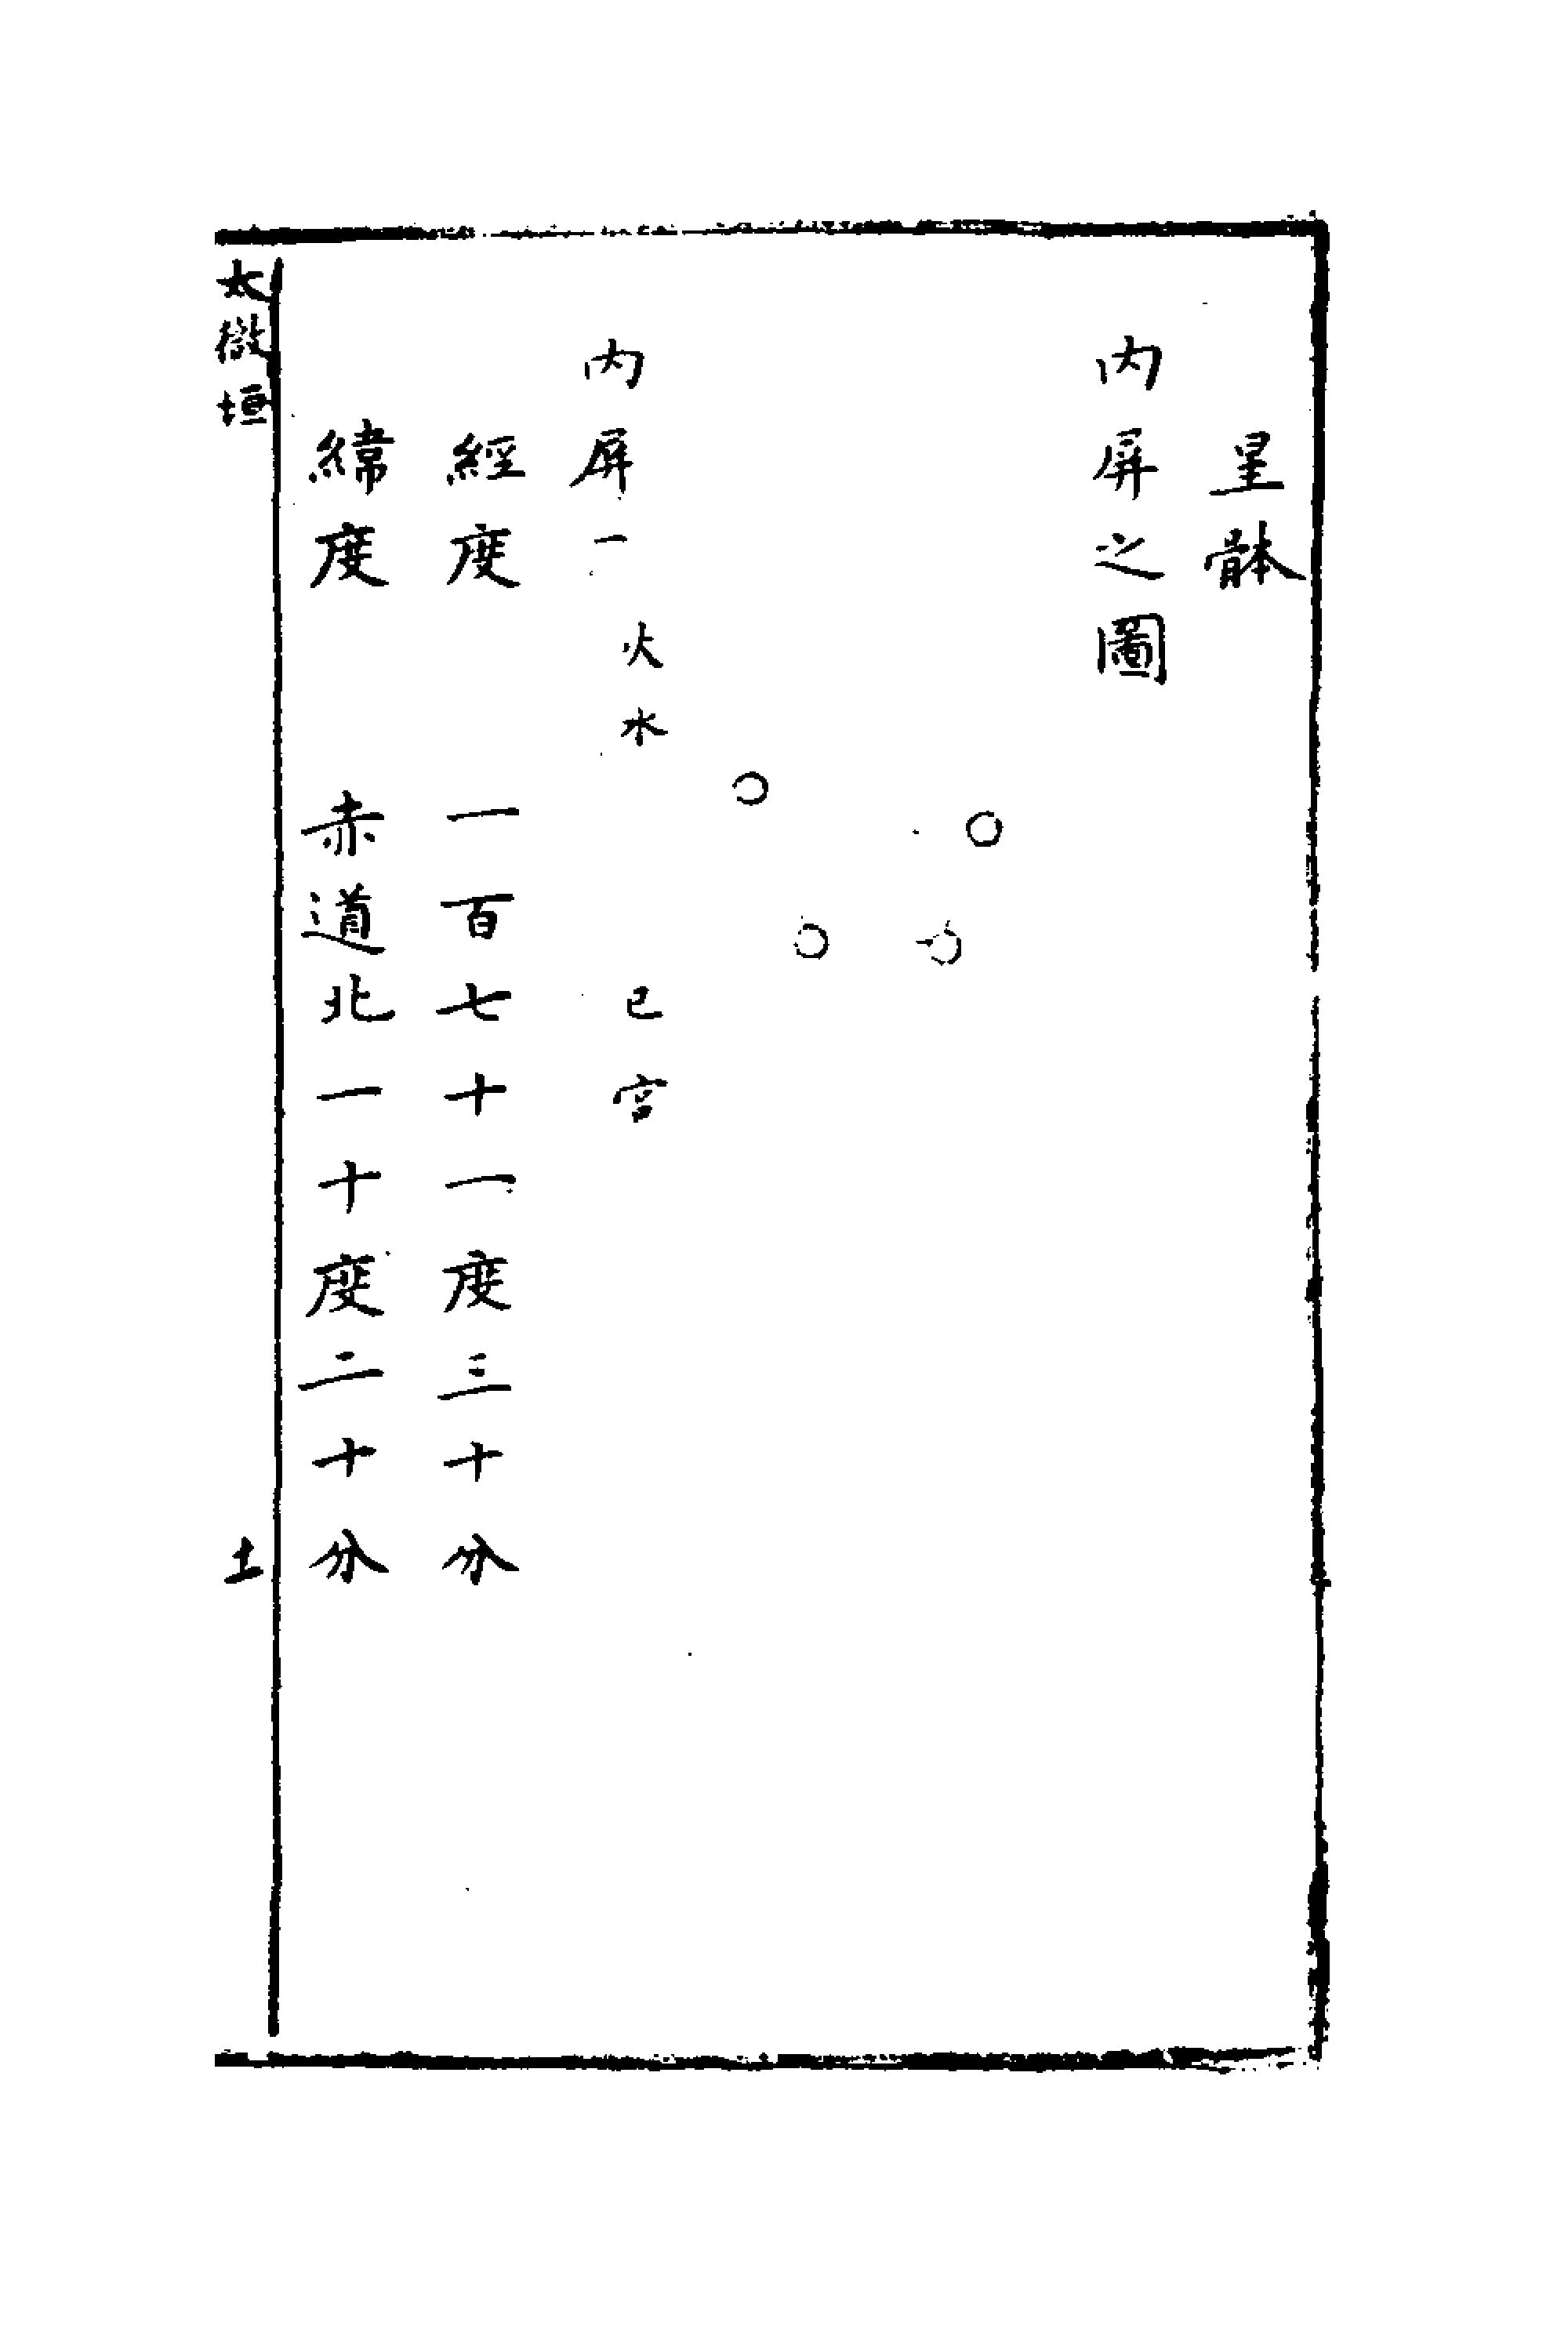 星躰
內屏之圖
內屏一 火水 巳宮
經度 一百七十一度三十分
緯度 赤道北一十度二十分
太微垣 土